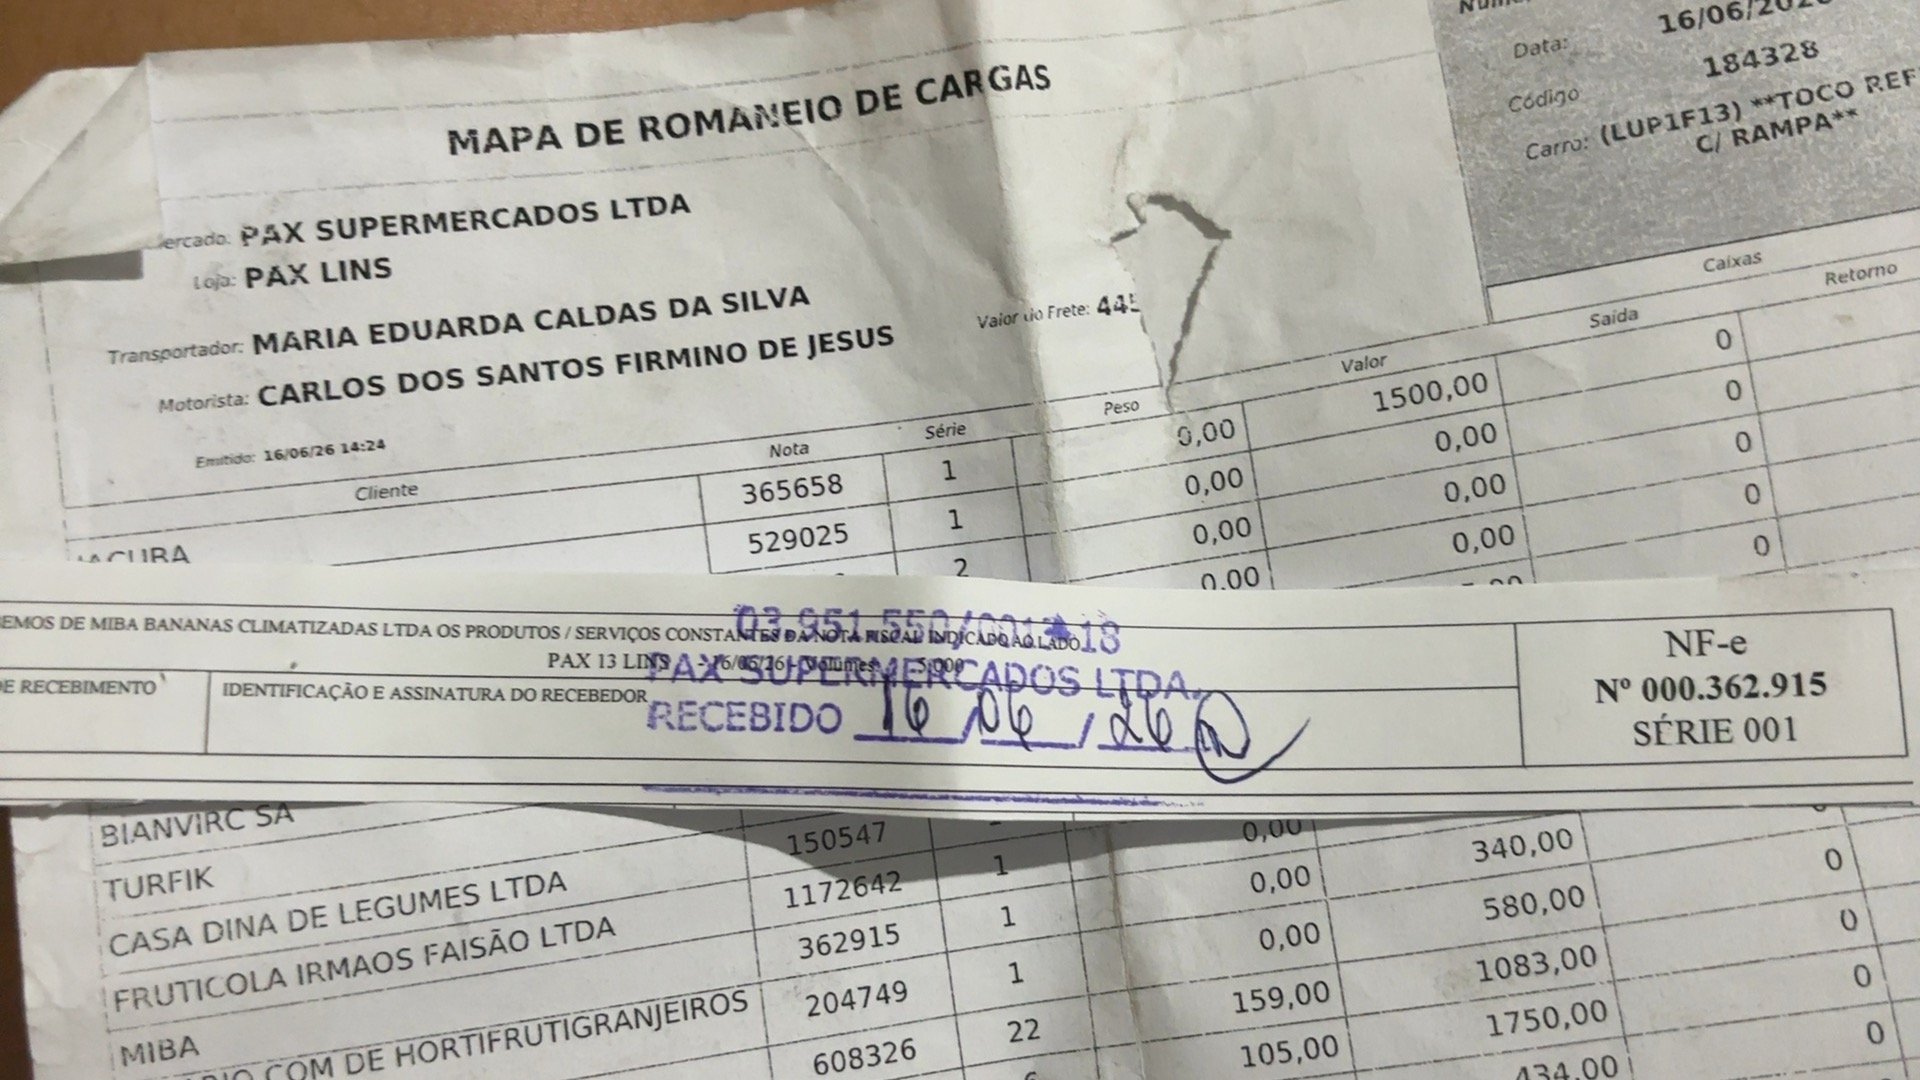 MAPA DE ROMANEIO DE CARGAS
16/06/202
Data:
Código 184328
Carro: (LUP1F13) **TOCO REF
C/ RAMPA**
ercado: PAX SUPERMERCADOS LTDA
Loja: PAX LINS
Transportador: MARIA EDUARDA CALDAS DA SILVA
Motorista: CARLOS DOS SANTOS FIRMINO DE JESUS
Valor do Frete: 445
Emitido: 16/06/26 14:24
Caixas
Cliente Nota Série Peso Valor Saída Retorno
365658 1 0,00 1500,00 0
ACUBA 529025 1 0,00 0,00 0
2 0,00 0,00 0
0,00 0,00 0
0
EMOS DE MIBA BANANAS CLIMATIZADAS LTDA OS PRODUTOS / SERVIÇOS CONSTANTES DA NOTA FISCAL INDICADO AO LADO
PAX 13 LINS - 16/06/26 - Volumes: 5,000
E RECEBIMENTO
IDENTIFICAÇÃO E ASSINATURA DO RECEBEDOR
PAX SUPERMERCADOS LTDA.
RECEBIDO 16/06/26
NF-e
Nº 000.362.915
SÉRIE 001
BIANVIRC SA
TURFIK 150547 0,00 340,00
CASA DINA DE LEGUMES LTDA 1172642 1 0,00 580,00 0
FRUTICOLA IRMAOS FAISÃO LTDA 362915 1 0,00 1083,00 0
MIBA 204749 1 159,00 1750,00 0
COM DE HORTIFRUTIGRANJEIROS 608326 22 105,00 434,00 0